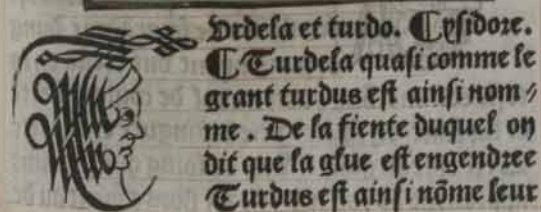 Urdela et turdo. ⸿ Ysidore.
⸿ Turdela quasi comme le
grant turdus est ainsi nom⸗
me . De la fiente duquel on
dit que la glue est engendree
Turdus est ainsi nõme leur